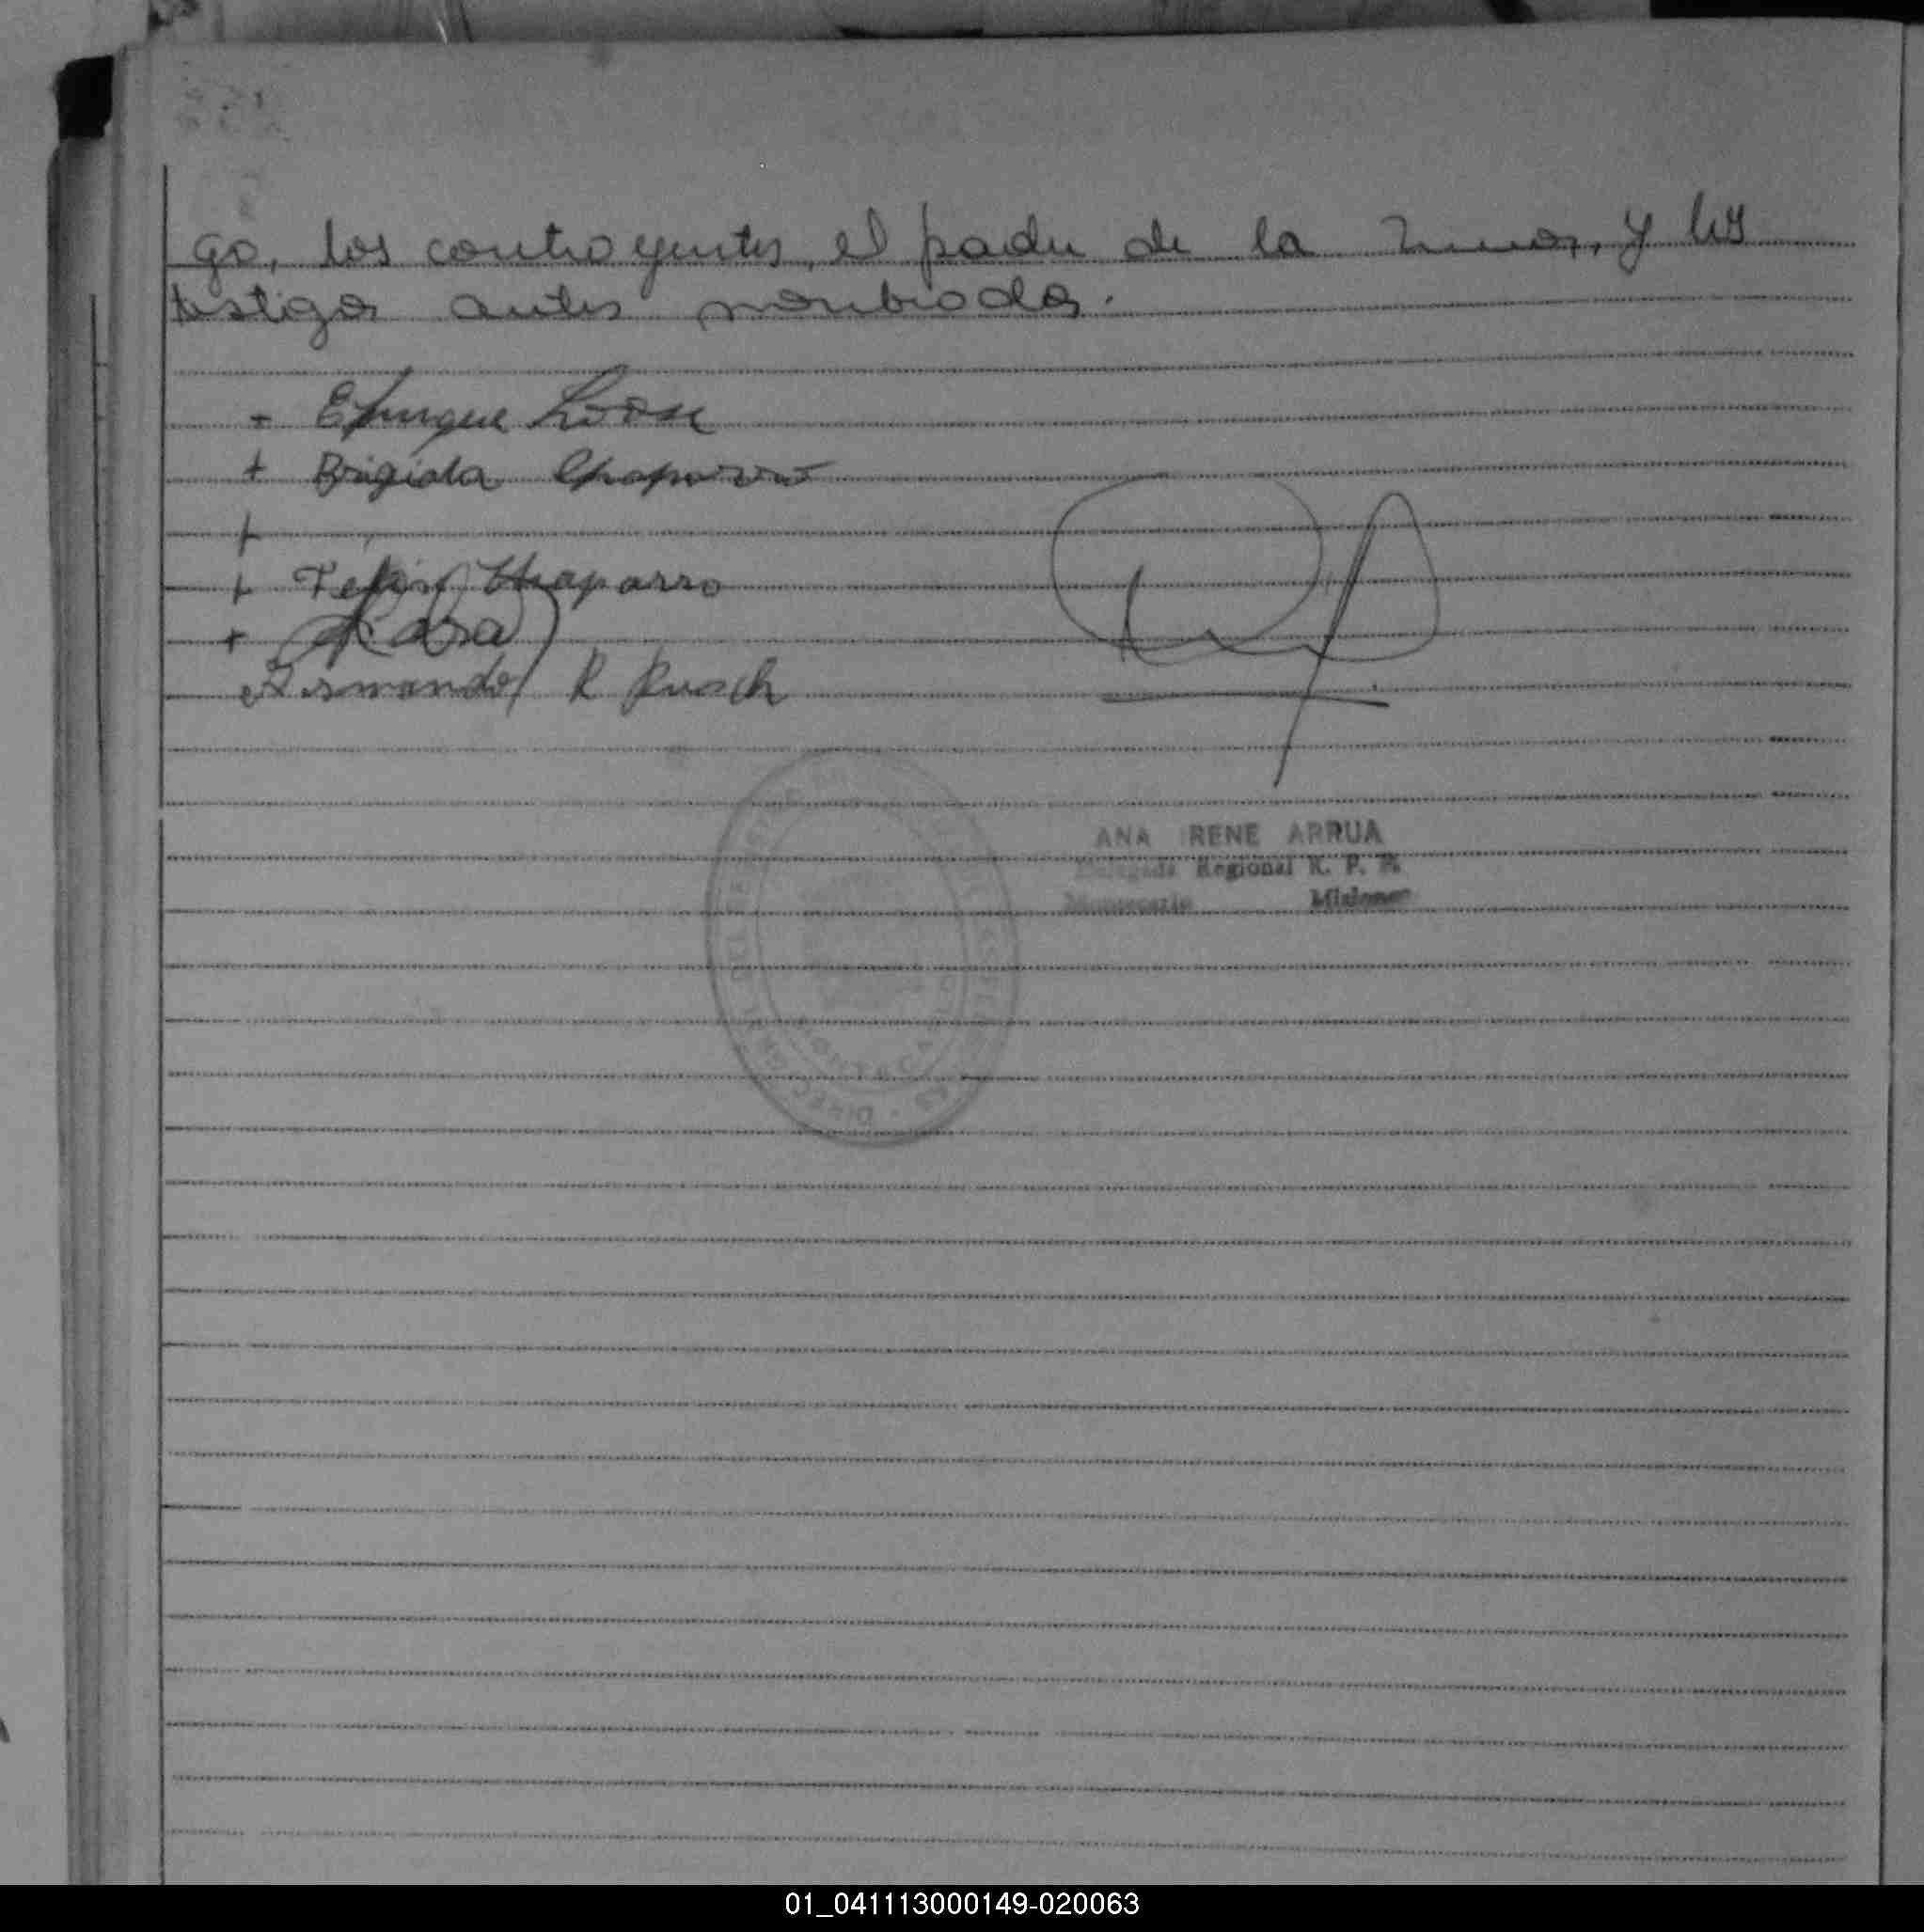 go, los contrayentes, el padre de la menor, y los
testigos antes nombrados.
+ Enrique Loose
+ Brigida Chaparro
+
+ Felix Chaparro
+
Armando R Rusch
ANA RENE ARRUA
Delegada Regional R. P. P.
Montecarlo Misiones
01_041113000149-020063